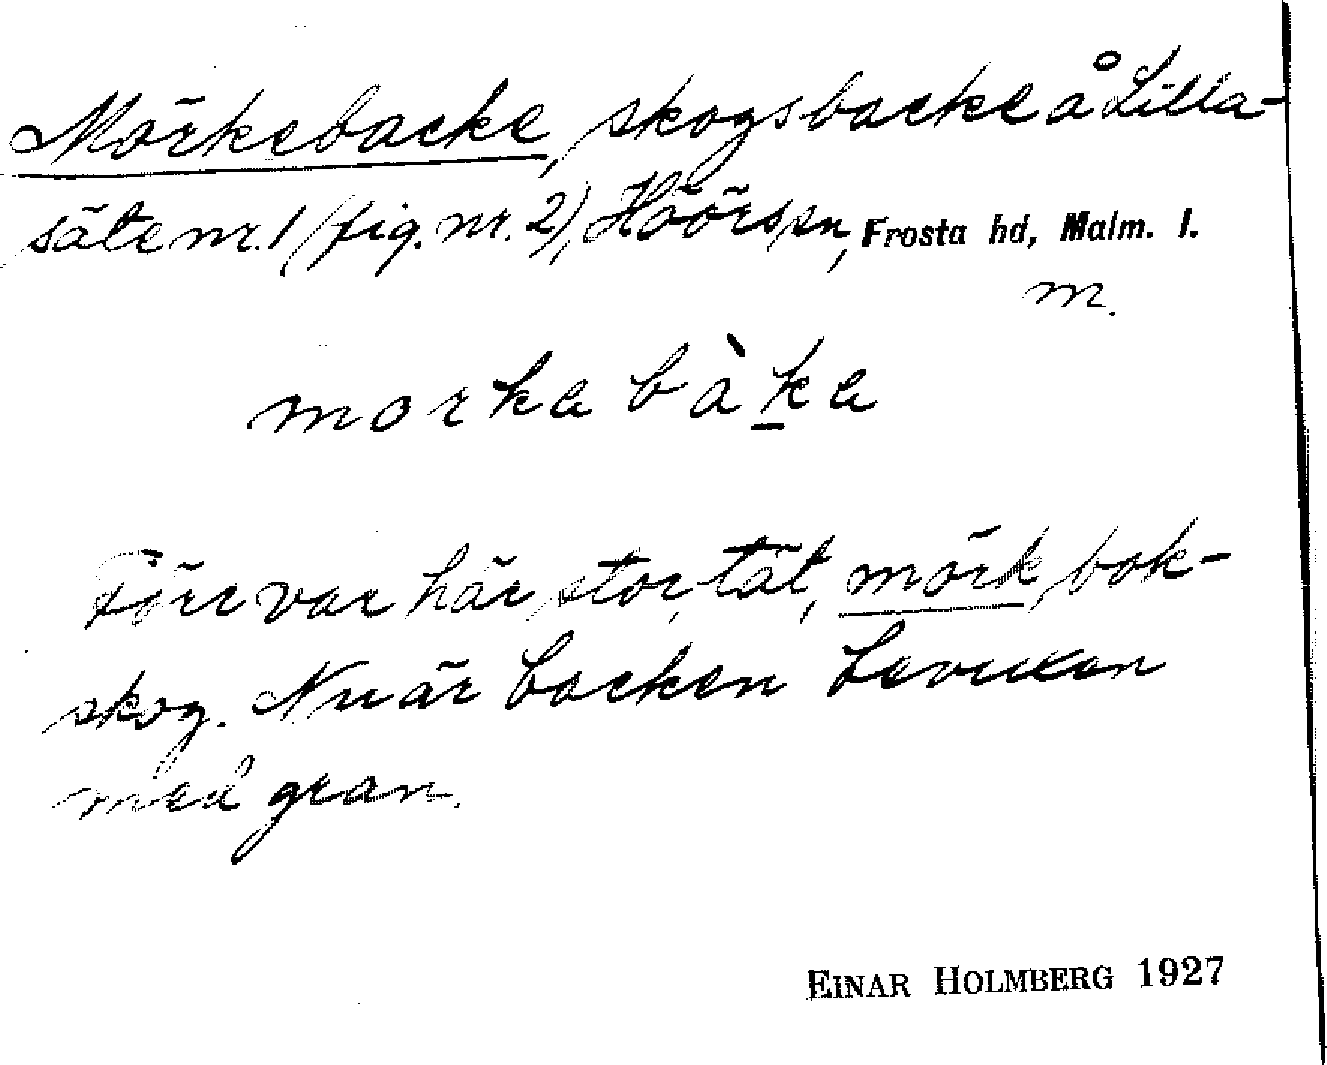 Mörkebacke, skogsbacke å Lilla-
säte nr. 1 (fig. nr. 2), Höörs sn, Frosta hd, Malm. l.
m.
morka bàka
Förr var här stor, tät, mörk, bok-
skog. Nu är backen bevuxen
med gran.
EINAR HOLMBERG 1927